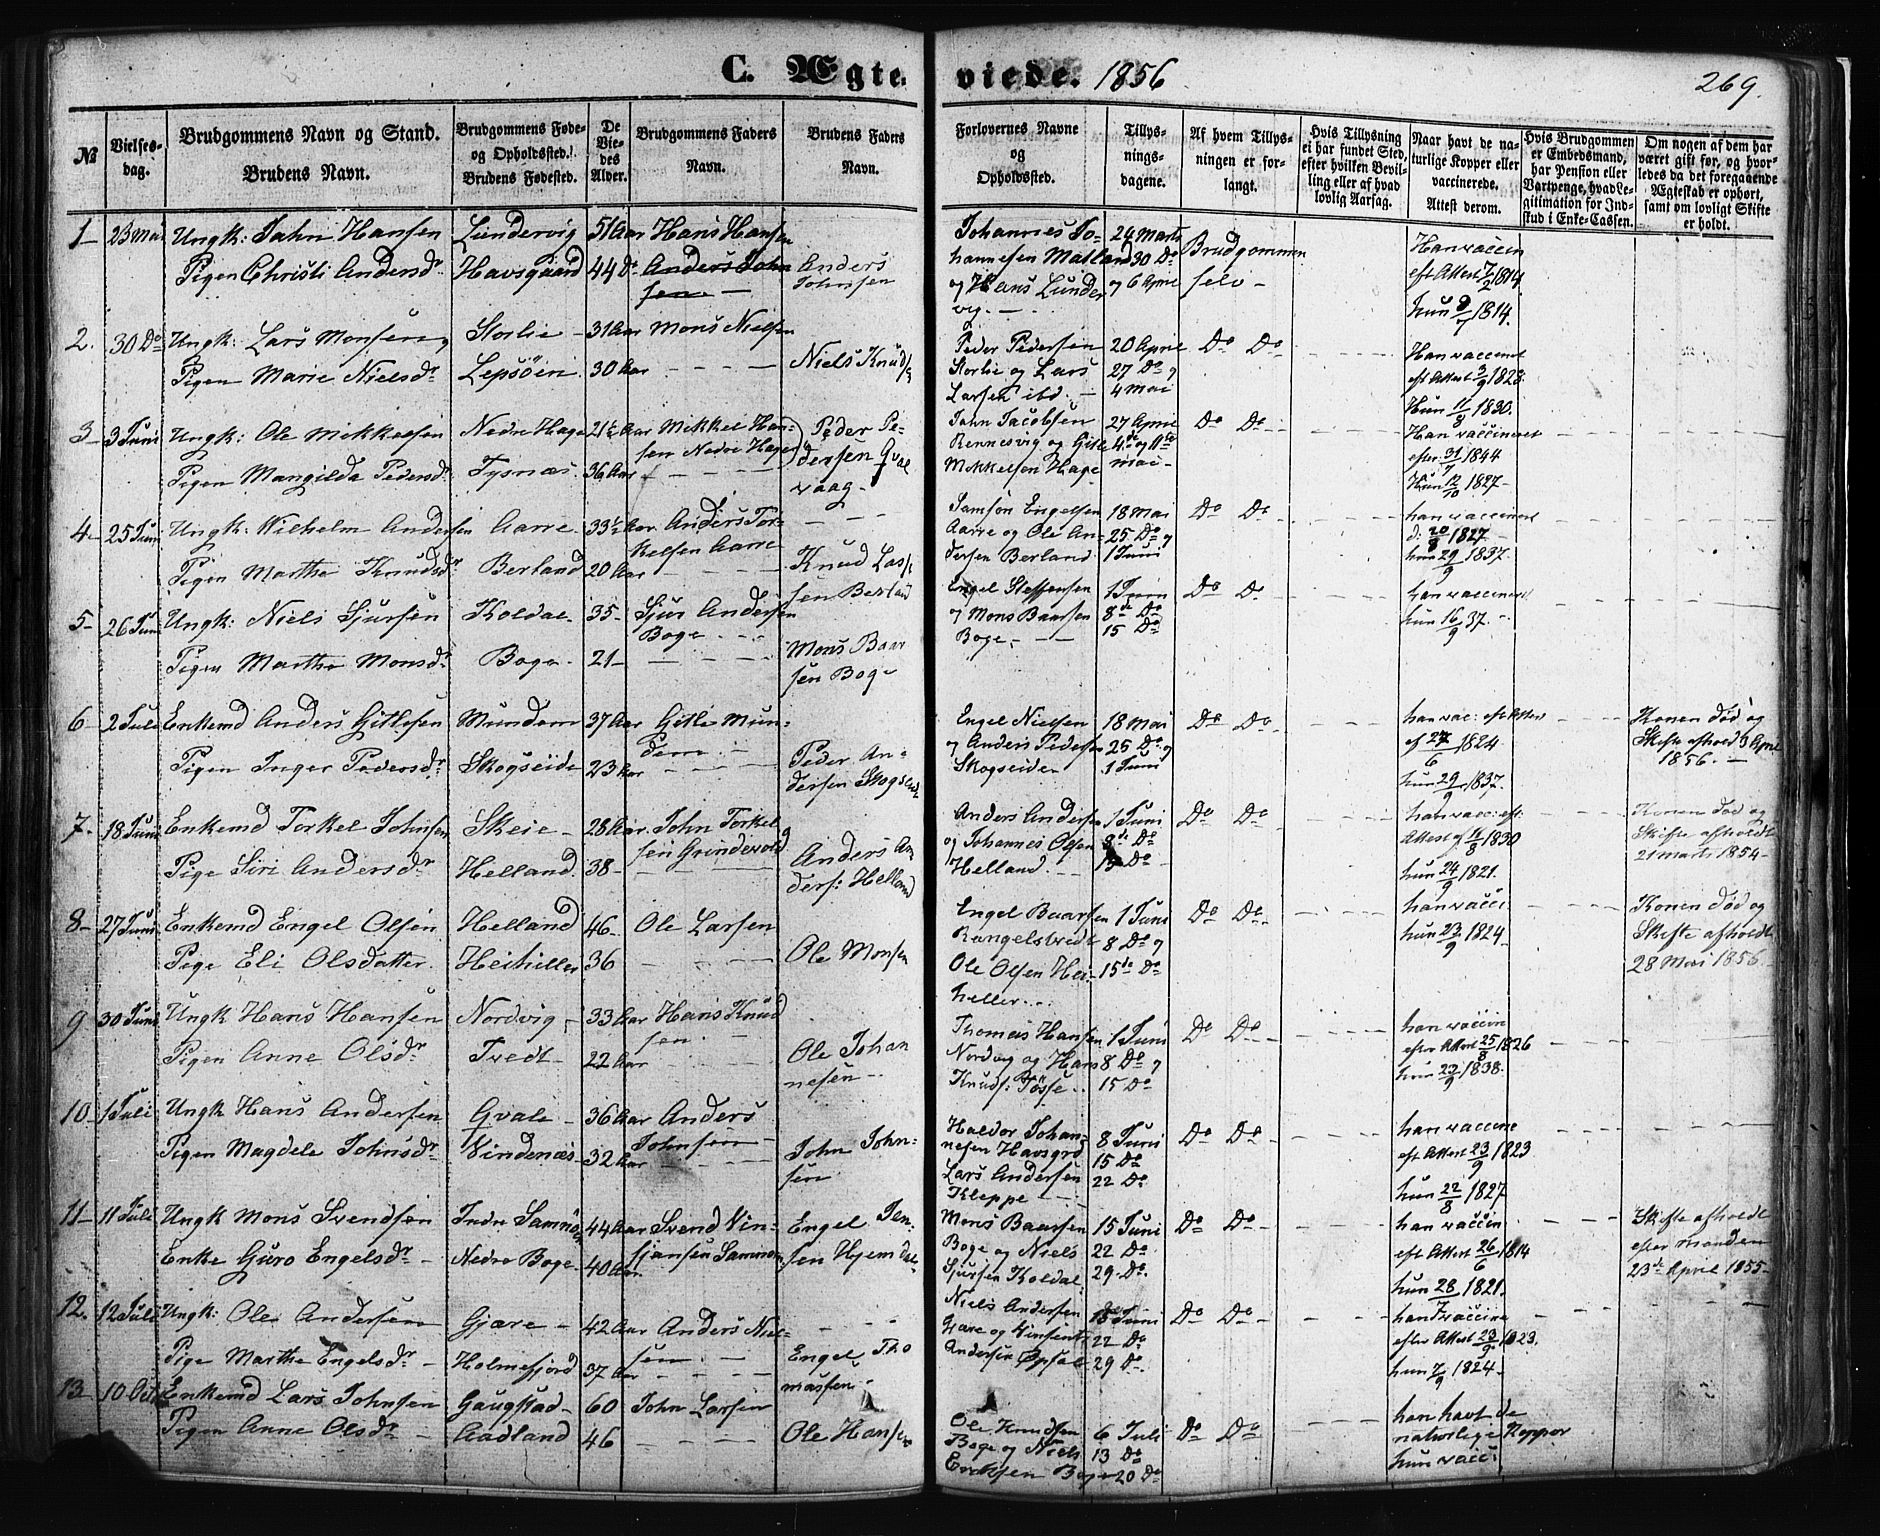 C. Ægteviede. 1856
269.
№
Vielsesdag.
Brudgommens Navn og Stand.
Brudens Navn.
Brudgommens Føde- og Opholdssted.
Brudens Fødested.
De Viedes Alder.
Brudgommens Faders Navn.
Brudens Faders Navn.
Forlovernes Navne og Opholdssted.
Tillysningsdagene.
Af hvem Tillysningen er forlangt.
Hvis Tillysning ei har fundet Sted, efter hvilken Bevilling eller af hvad lovlig Aarsag.
Naar havt de naturlige Kopper eller vaccinerede. Attest derom.
Hvis Brudgommen er Embedsmand, har Pension eller Vartpenge, hvad Legitimation for Indskud i Enke-Cassen.
Om nogen af dem har været gift før, og hvorledes da det foregaaende Ægteskab er ophørt, samt om lovligt Skifte er holdt.
1 23 Mai Ungk: John Hansen Lundervig 51 Aar Hans Hansen
Pigen Christi Andersdr Havsgaard 44 Do Anders Johnsen Anders Johnsen
Johannes Johannesen Matland og Hans Lundervig. 24 Marts 30 Do og 6 April Brudgommen selv
Han vaccin eft Attest 7/2 1814. hun 9/7 1814.
2. 30 Do Ungk: Lars Monsen Storlie 31 Aar Mons Nielsen
Pigen Marie Nielsdr Lepsøen 30 Aar Niels Knuds
Peder Pedersen Storlie og Lars Larsen ibd. 20 April 27 Do og 4 Mai Do Do
Han vaccineret eft Attest 3/9 1828. Hun 11/8 1830.
3 3 Juni Ungk: Ole Mikkelsen Nedre Hage 21½ Aar Mikkel Hansen Nedre Hage
Pigen Mangilda Pedersdr Tysnæs 36 Aar Peder Pedersen Gvalvaag
John Jacobsen Rennesvig og Gitle Mikkelsen Hage 27 April 4de og 11te Mai Do Do
Han vaccineret efter 31/7 1844 Hun 12/10 1827
4 25 Juni Ungk: Wilhelm Andersen Aarre 33½ Aar Anders Torkelsen Aarre
Pigen Marthe Knudsdr Berland 20 Aar Knud Lassen Berland
Samson Engelsen Aarre og Ole Andersen Berland 18 Mai 25 Do og 1 Juni Do Do
han vaccineret d: 20/8 1827 hun 29/9 1837.
5 26 Juni Ungk: Niels Sjursen Koldal 35 Sjur Andersen Boge
Pigen Marthe Monsdr Boge 21 Mons Baarsen Boge
Engel Steffensen og Mons Baarsen Boge 1 Juni 8de Do 15 Do Do Do
han vaccineret hun 16/9 37.
6 2 Juli Enkemd Anders Gitlesen Mundem 37 Aar Gitle Mundem
Pigen Inger Pedersdr Skogseide 23 Aar Peder Andersen Skogseide
Engel Nielsen og Anders Pedersen Skogseide 18 Mai 25 Do og 1 Juni Do Do
han vac: eft Attest af 27/6 1824 hun 29/9 1837.
Konen død og Skifte afholdt 3 April 1856.
7. 18 Juni Enkemd Torkel Johnsen Skeie 28 Aar. John Torkelsen Grindevold
Pige Siri Andersdr Helland 38 Anders Anders: Helland
Anders Andersen og Johannes Olsen Helland 1 Juni 8de Do 15 Do Do Do
han vacc: eft: Attest af 16/8 1830 hun 24/9 1821.
Konen død og Skifte afholdt 21 Marts 1854
8 27 Juni Enkemd Engel Olsen Helland 46 Ole Larsen
Pige Eli Olsdatter Heihiller 36 Ole Monsen
Engel Baarsen Rangelstvedt Ole Olsen Heiheller 1 Juni 8 Do og 15de Do Do Do
han vacci hun 23/9 1824
Konen død og Skifte afholdt 28 Mai 1856
9 30 Juni Ungk Hans Hansen Nordvig 33 Aar Hans Knudsen
Pigen Anne Olsdr Tvedt 22 Aar Ole Johannesen
Thomas Hansen Nordvig og Hans Knuds: Tøsse 1 Juni 8 Do og 15 Do Do Do
han vaccin efter Attest 25/8 1826 hun 23/9 1838.
10 1 Juli Ungk Hans Andersen Gvale 36 Aar Anders Johnsen
Pigen Magdele Johnsdr Vindenæs 32 Aar John Johnsen
Haldor Johannesen Havsgrd Lars Andersen Kleppe 8 Juni 15 Do 22 Do Do Do
han vaccine eft Attest 23/9 1823 hun 22/8 1827
11 11 Juli Ungk Mons Svendsen Indre Samnø 44 Aar Svend Vinsjansen Samnøen
Enke Guro Engelsdr Nedre Boge 40 Aar Engel Jensen Hjemdal
Mons Baarsen Boge og Niels Sjursen Koldal 15 Juni 22 Do 29 Do Do Do
han vaccin eft Attest 26/6 1814 hun 28/7 1821.
Skifte afholdt efter manden 23de April 1855
12. 12 Juli Ungk: Ole Andersen Gjære 42 Aar Anders Nielsen
Pige Marthe Engelsdr Holmefjord 37 Aar Engel Thomassen
Niels Andersen Gjære og Vinsents Andersen Opsal 15 Juni 22 Do 29 Do Do Do
han vaccine efter Attest 23/9 1823. hun 7/9 1824
13 10 Oct Enkemd Lars Johnsen Gaugstad 60 John Larsen
Pigen Anne Olsdr Aadland 46 Ole Hansen
Ole Knudsen Boge og Niels Eriksen Boge 6 Juli 13 Do 20 Do Do Do
han havt de naturlige Kopper hun vacc: